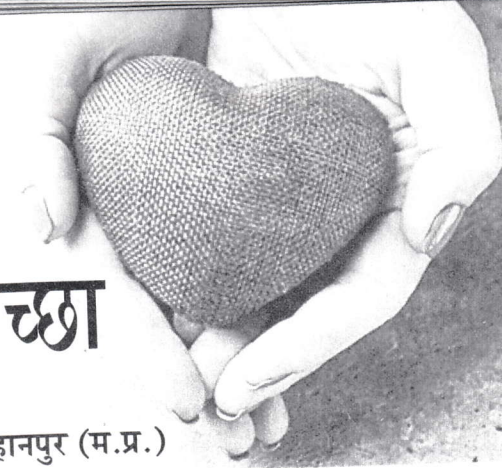 च्छा
हानपुर (म.प्र.)